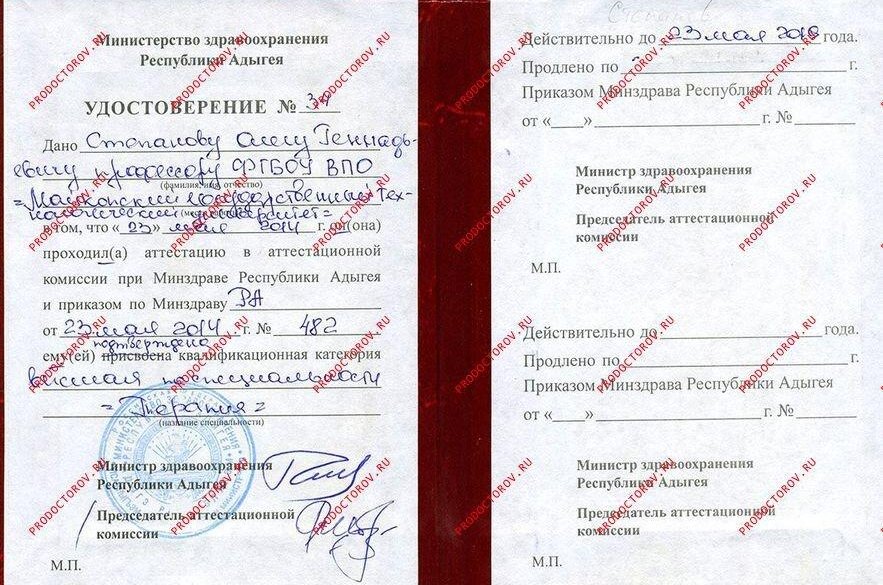 Министерство здравоохранения
Республики Адыгея
УДОСТОВЕРЕНИЕ №
Дано Степанову Олегу Геннадь-
евичу профессору ФГБОУ ВПО
(фамилия, имя, отчество)
"Майкопский государственный тех-
нологический университет"
в том, что «23» мая 2014 г. он(она)
проходил(а) аттестацию в аттестационной
комиссии при Минздраве Республики Адыгея
и приказом по Минздраву РА
от 23 мая 2014 г. № 482
подтверждена
ему(ей) присвоена квалификационная категория
высшая по специальности
"Терапия"
(название специальности)
Министр здравоохранения
Республики Адыгея
Председатель аттестационной
комиссии
М.П.
Степанов
Действительно до 23 мая года.
Продлено по г.
Приказом Минздрава Республики Адыгея
от «___» г. №
Министр здравоохранения
Республики Адыгея
Председатель аттестационной
комиссии
М.П.
Действительно до года.
Продлено по г.
Приказом Минздрава Республики Адыгея
от «___» г. №
Министр здравоохранения
Республики Адыгея
Председатель аттестационной
комиссии
М.П.
PRODOCTOROV.RU